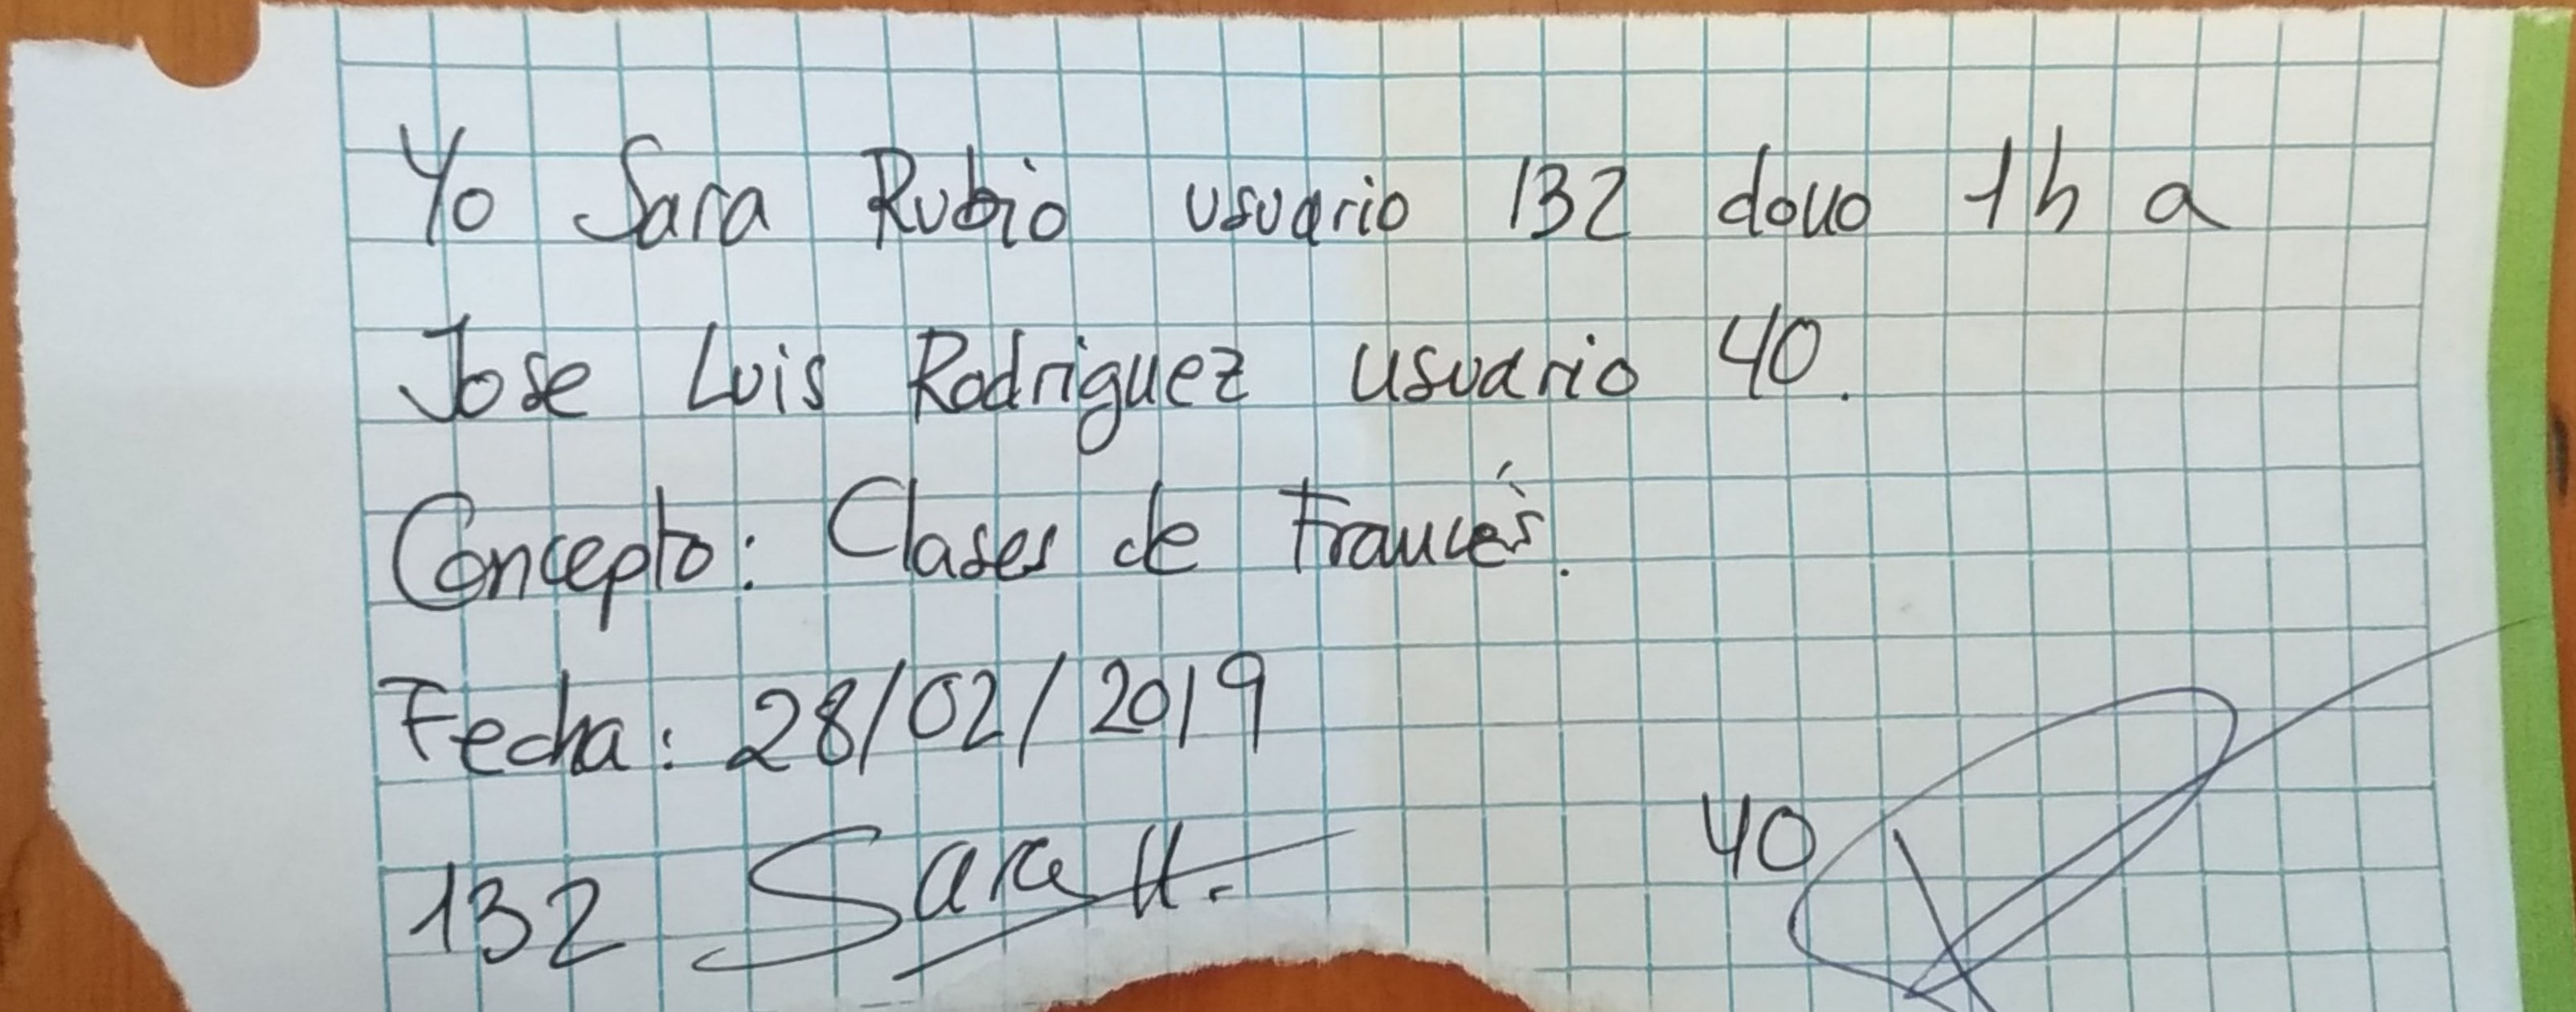 Yo Sara Rubio usuario 132 dono 1h a
Jose Luis Rodriguez usuario 40.
Concepto: Clases de Francés.
Fecha: 28/02/2019
132 Sara H. 40